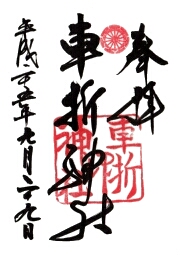 奉拝
車折神社
車折
神社
平成二十五年九月二十九日